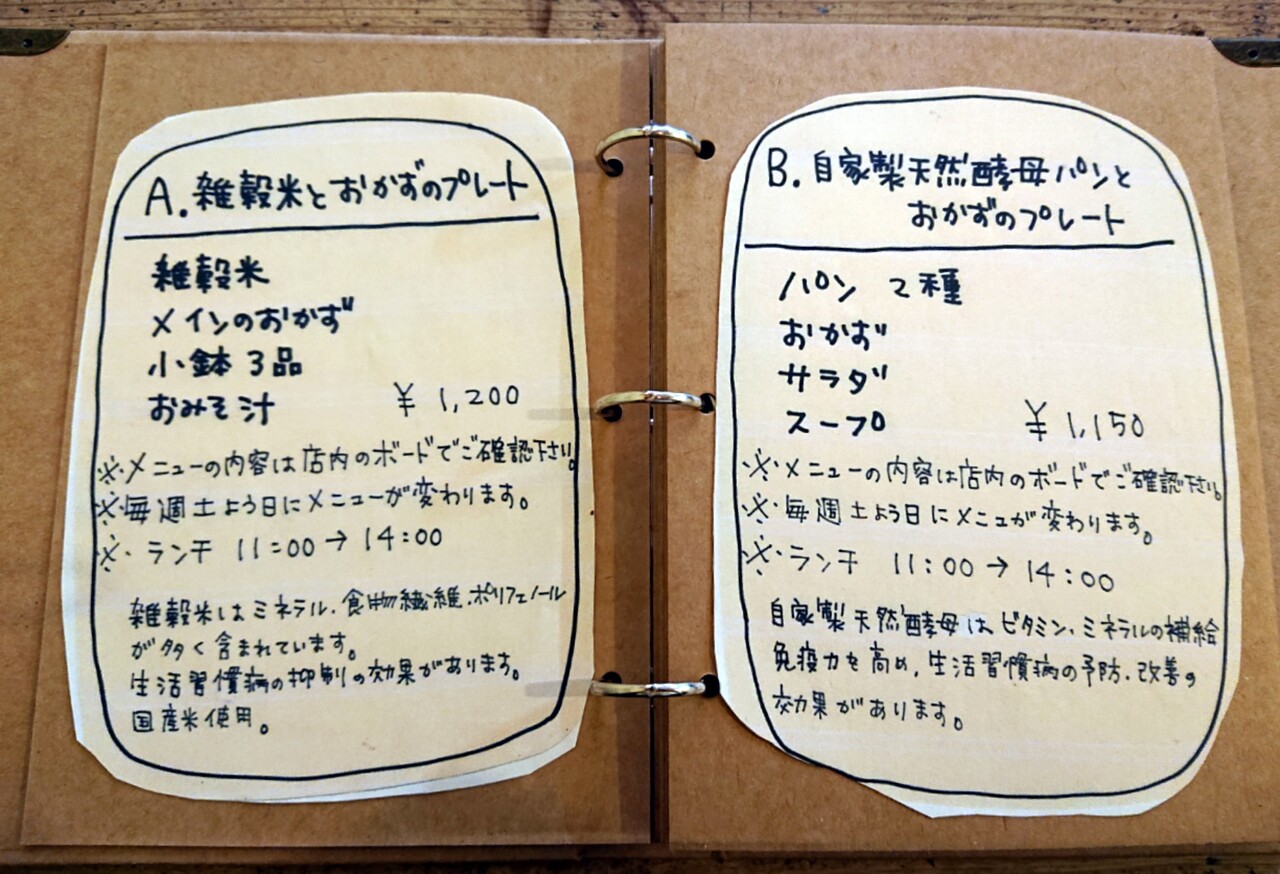 A.雑穀米とおかずのプレート
雑穀米
メインのおかず
小鉢3品
おみそ汁 ¥1,200
※メニューの内容は店内のボードでご確認下さい。
※毎週土よう日にメニューが変わります。
※ランチ 11:00→14:00
雑穀米はミネラル.食物繊維.ポリフェノール
が多く含まれています。
生活習慣病の抑制の効果があります。
国産米使用。
B.自家製天然酵母パンと
おかずのプレート
パン 2種
おかず
サラダ
スープ ¥1,150
※メニューの内容は店内のボードでご確認下さい。
※毎週土よう日にメニュが変わります。
※ランチ 11:00→14:00
自家製天然酵母はビタミン、ミネラルの補給
免疫力を高め,生活習慣病の予防.改善の
効果があります。